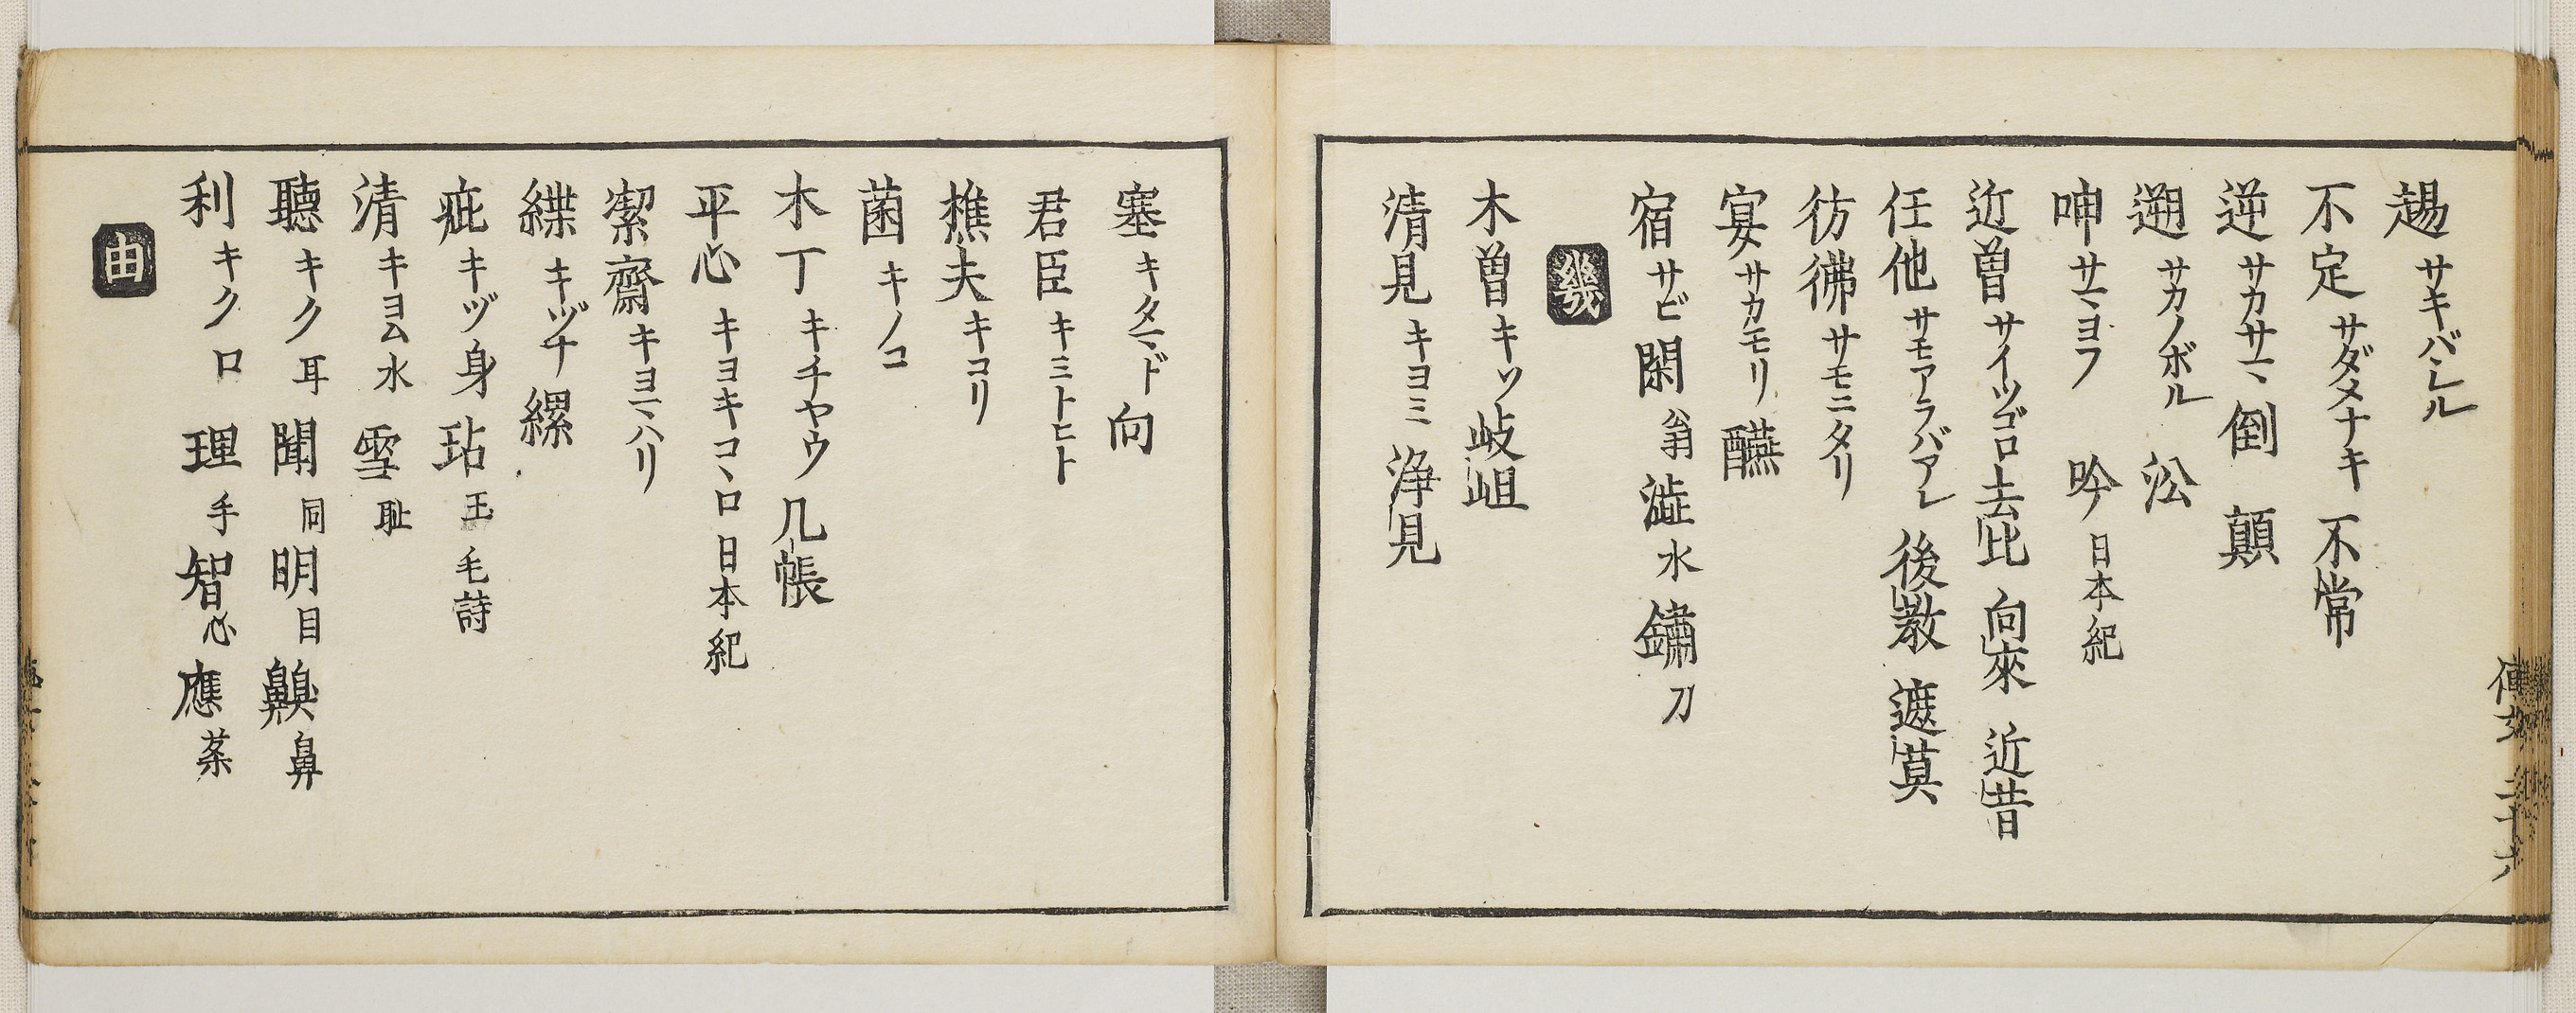 趜 サキバシル
不定 サダメナキ 不常
逆 サカサマ、 倒 顛
遡 サカノボル 㳂
呻 サマヨフ 吟 日本紀
近曽 サイツゴロ 去比 向來 近昔
任他 サモアラバアレ 後教 遮莫
彷彿 サモニタリ
宴 サカモリ 醼
宿 サビ 閑 翁 澁 水 鏽 刀
幾
木曽 キソ 岐岨
清見 キヨミ 浄見
塞 キタマド 向
君臣 キミトヒト
樵夫 キコリ
菌 キノコ
木丁 キチヤウ 几帳
平心 キヨキコヽロ 日本紀
潔齋 キヨマハリ
緤 キヅナ 縲
疵 キヅ 身 玷 玉 毛詩
清 キヨム 水 雪 耻
聽 キク 耳 聞 同 明 目 齅 鼻
利 キク 口 理 手 智 心 應 茶
由